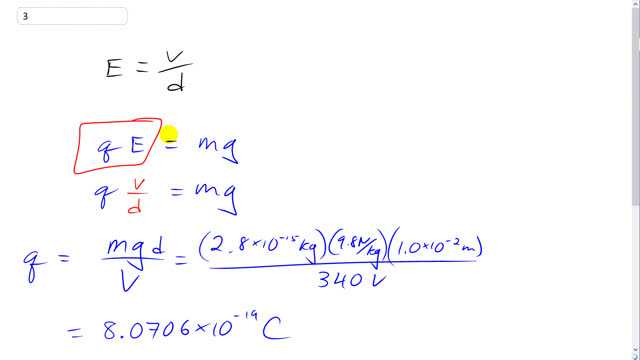 3
E = V/d
q E = mg
q V/d = mg
q = mgd/V = (2.8×10⁻¹⁵kg)(9.8N/kg)(1.0×10⁻²m)/340V
= 8.0706×10⁻¹⁹ C